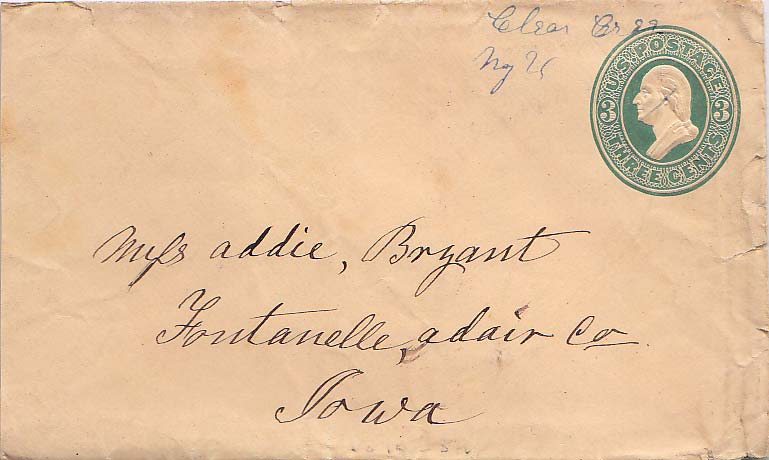 Clear Creek
U.S. POSTAGE
3 3
THREE CENTS
Miss addie, Bryant
Fontanelle, adair Co
Iowa